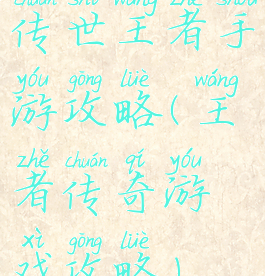 chuán shì wáng zhě shǒu
传世王者手
yóu gōng lüè wáng
游攻略(王
zhě chuán qí yóu
者传奇游
xì gōng lüè
戏攻略)